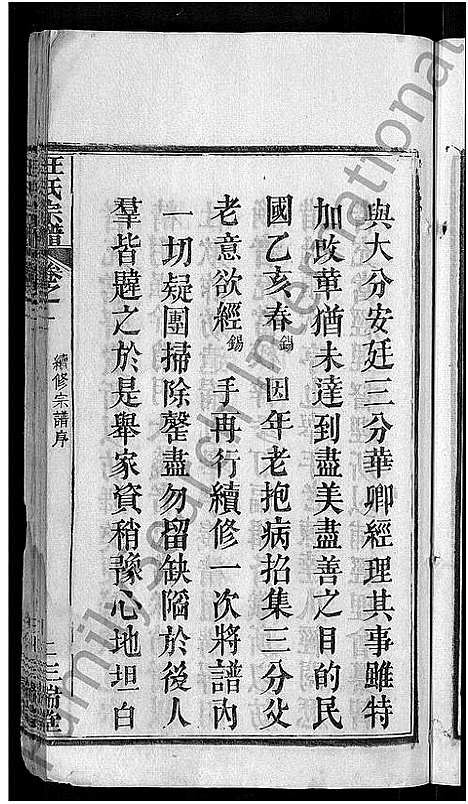 與大分安廷三分華卿經理其事雖特
加改革猶未達到盡美盡善之目的民
國乙亥春錫 因年老抱病招集三分父
老意欲經錫 手再行續修一次將譜內
一切疑團掃除罄盡勿留缺陷於後人
羣皆韙之於是舉家資稍豫心地坦白
汪氏宗譜 卷之一
續修宗譜序
三瑞堂
FamilySearch International